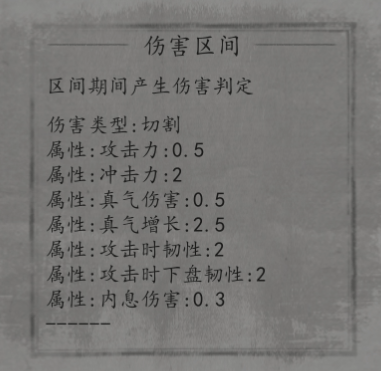 伤害区间
区间期间产生伤害判定
伤害类型:切割
属性:攻击力:0.5
属性:冲击力:2
属性:真气伤害:0.5
属性:真气增长:2.5
属性:攻击时韧性:2
属性:攻击时下盘韧性:2
属性:内息伤害:0.3
------